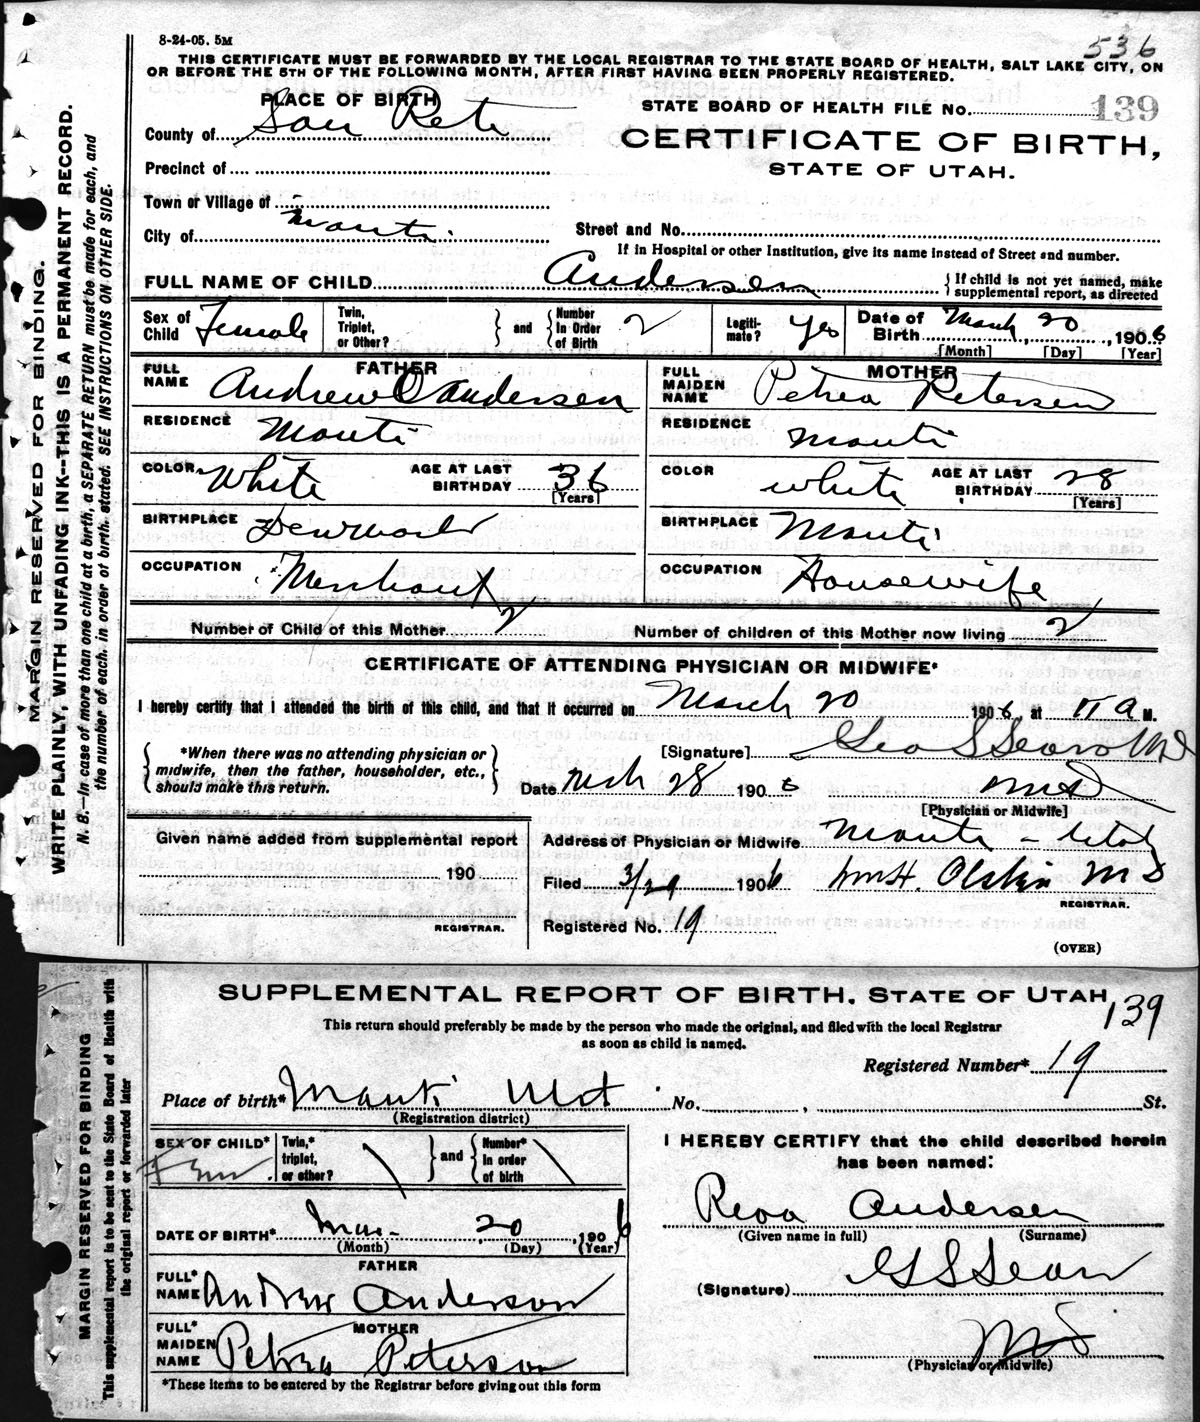 8-24-05. 5M
536
THIS CERTIFICATE MUST BE FORWARDED BY THE LOCAL REGISTRAR TO THE STATE BOARD OF HEALTH, SALT LAKE CITY, ON
OR BEFORE THE 5TH OF THE FOLLOWING MONTH, AFTER FIRST HAVING BEEN PROPERLY REGISTERED.
MARGIN RESERVED FOR BINDING.
WRITE PLAINLY, WITH UNFADING INK--THIS IS A PERMANENT RECORD.
N. B.—In case of more than one child at a birth, a SEPARATE RETURN must be made for each, and
the number of each, in order of birth, stated. SEE INSTRUCTIONS ON OTHER SIDE.
PLACE OF BIRTH
STATE BOARD OF HEALTH FILE No. 139
County of San Pete
CERTIFICATE OF BIRTH,
STATE OF UTAH.
Precinct of
Town or Village of
City of Manti
Street and No.
If in Hospital or other Institution, give its name instead of Street and number.
FULL NAME OF CHILD Andersen { If child is not yet named, make
supplemental report, as directed
Sex of Child Female
Twin, Triplet, or Other? } and { Number In Order of Birth 2
Legitimate? Yes
Date of Birth March 20, 1906
[Month] [Day] [Year]
FATHER
FULL NAME Andrew O Andersen
MOTHER
FULL MAIDEN NAME Petrea Petersen
RESIDENCE Manti
RESIDENCE Manti
COLOR White AGE AT LAST BIRTHDAY 36 [Years]
COLOR white AGE AT LAST BIRTHDAY 28 [Years]
BIRTHPLACE Denmark
BIRTHPLACE Manti
OCCUPATION Merchant
OCCUPATION Housewife
Number of Child of this Mother 2
Number of children of this Mother now living 2
CERTIFICATE OF ATTENDING PHYSICIAN OR MIDWIFE*
I hereby certify that I attended the birth of this child, and that it occurred on March 20 1906, at 11 a M.
{ *When there was no attending physician or
midwife, then the father, householder, etc.,
should make this return. }
[Signature] Geo S Sears MD
Date Mch 28 1906
MD
[Physician or Midwife]
Given name added from supplemental report
190
REGISTRAR.
Address of Physician or Midwife Manti - Utah
Filed 3/29 1906 Wm H. MD
REGISTRAR.
Registered No. 19
(OVER)
MARGIN RESERVED FOR BINDING
This supplemental report is to be sent to the State Board of Health with
the original report or forwarded later
SUPPLEMENTAL REPORT OF BIRTH. STATE OF UTAH
139
This return should preferably be made by the person who made the original, and filed with the local Registrar
as soon as child is named.
Registered Number* 19
Place of birth* Manti Utah No. , St.
(Registration district)
SEX OF CHILD* Fem
Twin,* triplet, or other? } and { Number* In order of birth
I HEREBY CERTIFY that the child described herein
has been named:
Reva Andersen
(Given name in full) (Surname)
DATE OF BIRTH* Mar- 20, 1906
(Month) (Day) (Year)
FATHER
FULL* NAME Andrew Anderson
(Signature) G S Sears
MOTHER
FULL* MAIDEN NAME Petrea Peterson
MD
(Physician or Midwife)
*These items to be entered by the Registrar before giving out this form